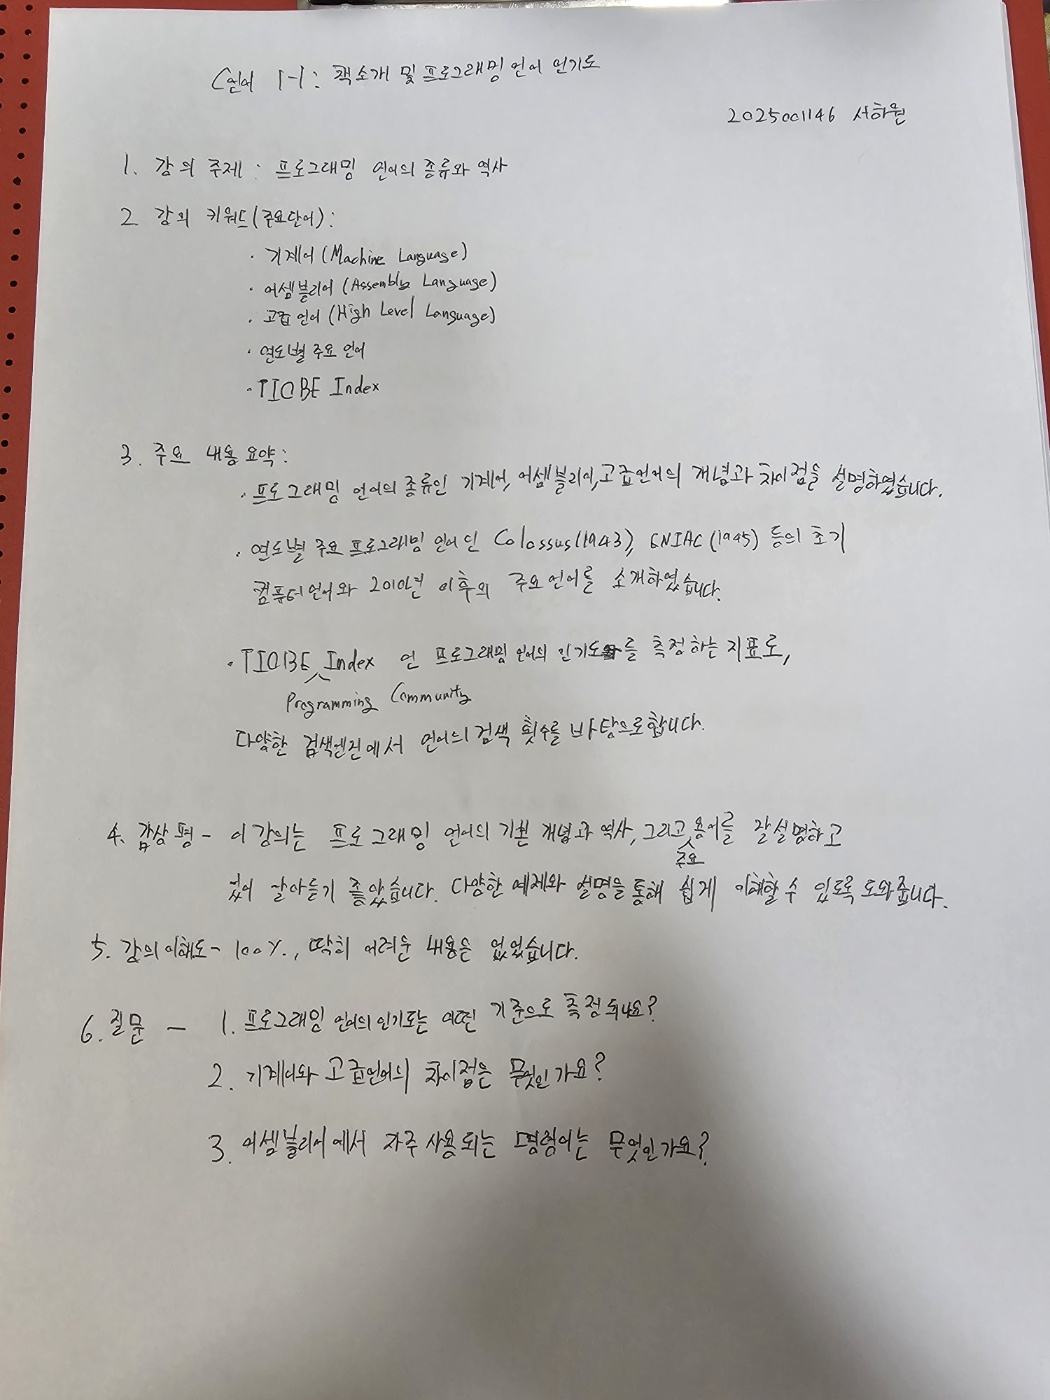 C언어 1-1: 책소개 및 프로그래밍 언어 인기도
2025001146 서하원
1. 강의 주제 : 프로그래밍 언어의 종류와 역사
2. 강의 키워드(주요단어):
· 기계어 (Machine Language)
· 어셈블리어 (Assembly Language)
· 고급 언어 (High Level Language)
· 연도별 주요 언어
· TIOBE Index
3. 주요 내용 요약:
· 프로그래밍 언어의 종류인 기계어, 어셈블리어, 고급언어의 개념과 차이점을 설명하였습니다.
· 연도별 주요 프로그래밍 언어인 Colossus(1943), ENIAC(1945) 등의 초기
컴퓨터언어와 2010년 이후의 주요 언어를 소개하였습니다.
· TIOBE Index 언 프로그래밍 언어의 인기도를 측정하는 지표로,
Programming Community
다양한 검색엔진에서 언어의 검색 횟수를 바탕으로합니다.
4. 감상평 - 이 강의는 프로그래밍 언어의 기본 개념과 역사, 그리고 용어를 잘 설명하고
주요
있어 알아듣기 좋았습니다. 다양한 예제와 설명을 통해 쉽게 이해할 수 있도록 도와줍니다.
5. 강의 이해도 - 100%, 딱히 어려운 내용은 없었습니다.
6. 질문 - 1. 프로그래밍 언어의 인기도는 어떤 기준으로 측정되나요?
2. 기계어와 고급언어의 차이점은 무엇인가요?
3. 어셈블리어에서 자주 사용되는 명령어는 무엇인가요?